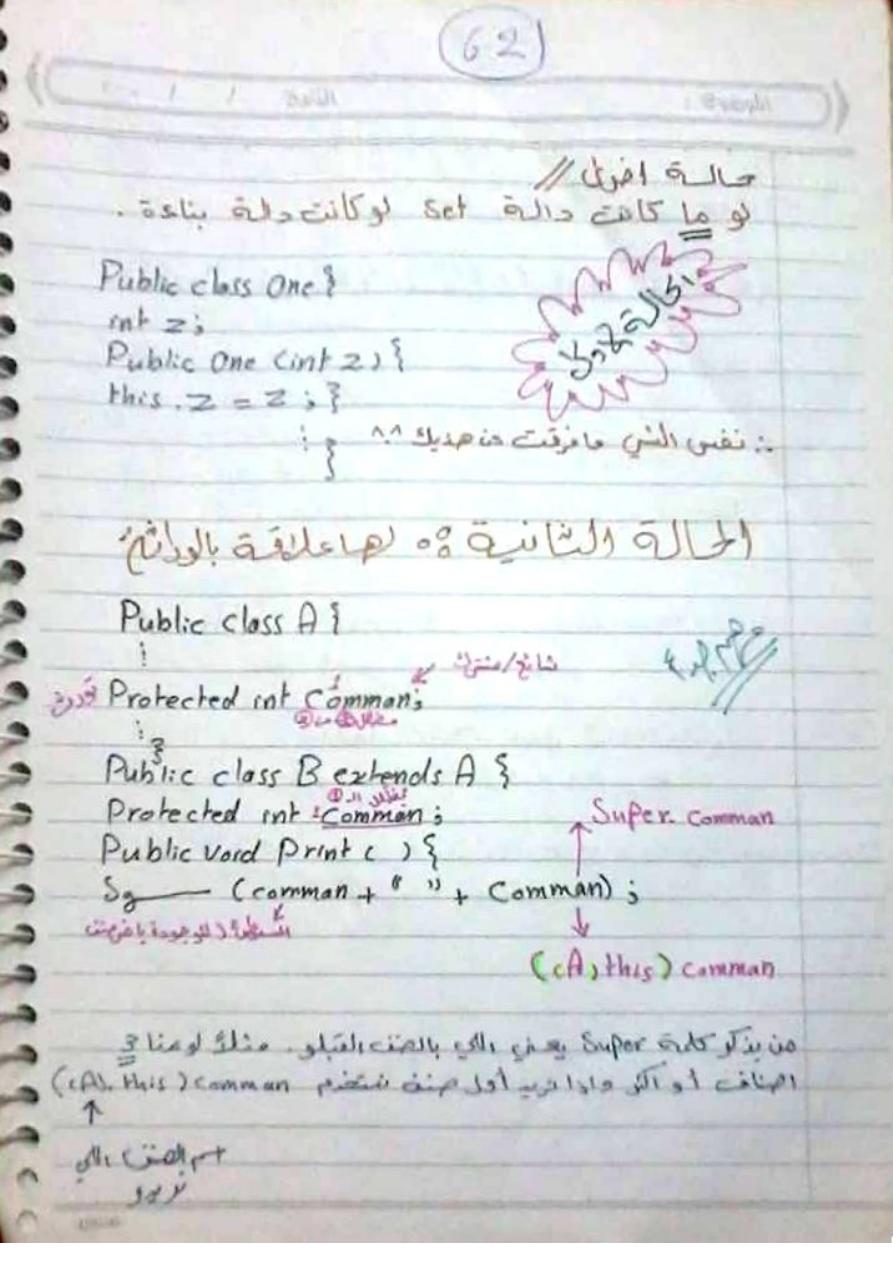 62
حالة اخرى //
لو ما كانت دالة Set لو كانت دالة بناءة .
Public class One {
int z;
Public One (int z) {
this . z = z ; }
الحالة الأولى
∴ نفس الشي ما فرقت عن هذيك ^^
⋮ }
الحالة الثانية : لها علاقة بالوراثة
Public class A {
⋮
شائع/مشترك
Protected int Comman;
⋮ }
Public class B extends A {
Protected int Comman ;
Super. comman
Public void Print ( ) {
Sy—— (comman + " " + Comman) ;
((A) this) comman
من يذكر كلمة Super يعني اللي بالصنف القبلو. مثلاً لو عنا 3
اصناف أو اكثر واذا نريد أول صنف نستخدم ((A). this ) comman
↑
اسم الصنف اللي
نريدو